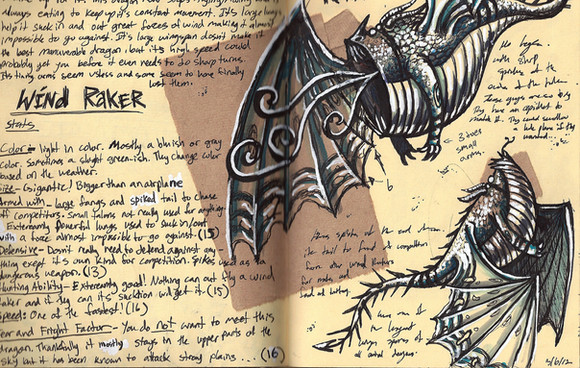 always eating to keep up its constant movement. It's large lungs
help it suck in and out great forces of wind making it almost
impossible to go against. It's large wingspan doesn't make it
the best maneuverable dragon but it's high speed could
probably get you before it even needs to do sharp turns.
It's tiny arms seem usless and some seem to have finally
lost them.
WIND RAKER
Stats
Color - light in color. Mostly a bluish or gray
color, sometimes a slight green-ish. They change color
based on the weather.
Size - Gigantic! Bigger than an airplane
Armed with - large fangs and spiked tail to chase
off competitors. Small talons not really used for anything.
Extremely powerful lungs used to suck in/out
with a force almost impossible to go against (15)
Defensive - Doesn't really need to defend against any
thing except it's own kind for competition. Spikes used as a
dangerous weapon. (13)
Hunting Ability - Extremely good! Nothing can out fly a wind
Raker and if they can it's suction will get it. (15)
Speed: One of the fastest! (16)
Fear and Fright Factor - You do not want to meet this
dragon. Thankfully it mostly stays in the upper parts of the
sky but it has been known to attack stray planes... (16)
with sharp
spines
3 over
small
arms.
b
it's tail to fend of competitors
from other Wind Rakers
for mates and
wing spans of
all aerial dragons.
5/6/12